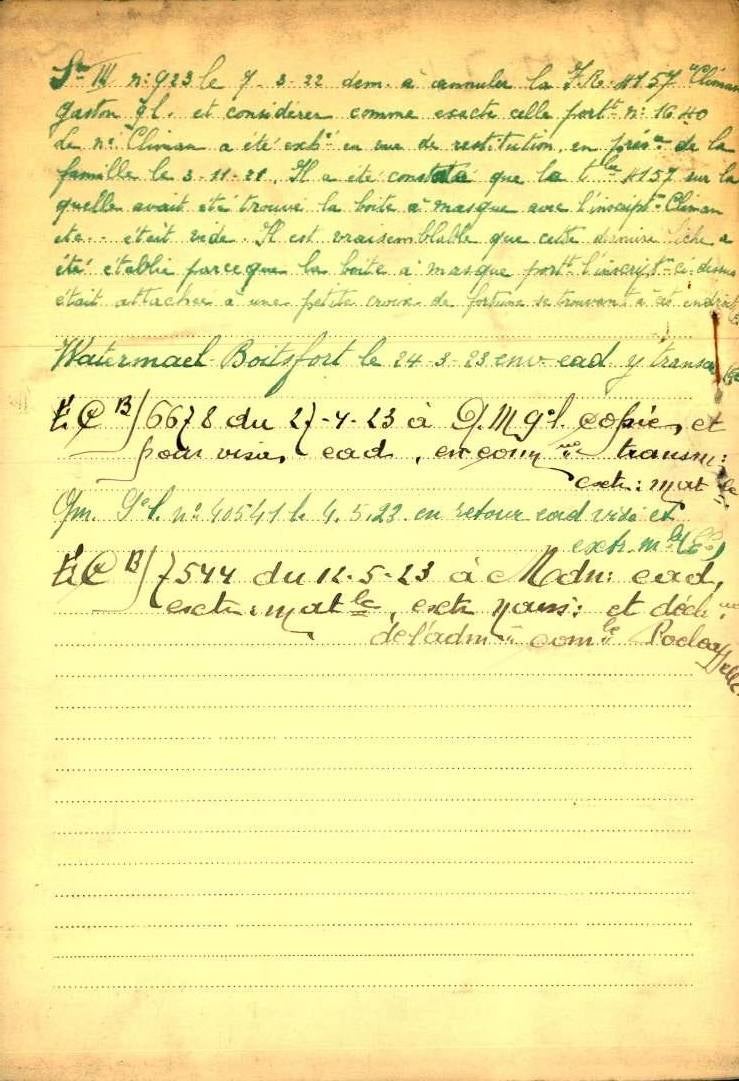 Son III n: 923 le 7-3-22 dem. à annuler la F.R. 4157 "Climan
Gaston Gl. et considérer comme exacte celle portt n: 1640
Le nd Climan a été exhé en vue de restitution, en présce de la
famille le 3-11-21. Il a été constaté que la tbe 4157 sur la
quelle avait été trouvé la boite à masque avec l'inscriptn Climan
etc... était vide. Il est vraisemblable que cette dernière fiche a
été établie parceque la boite à masque portt l'inscriptn ci-dessus
était attachée à une petite croix de fortune se trouvant à cet endroit
Watermael-Boitsfort le 24-3-23 env. ead y transc
E.C B) 6678 du 27-4-23 à Q.M.Gal. copie, et
pour visa, ead, en comm transm:
extr: mat le
Qm. Gal. n: 40541 le 4.5.23. en retour ead visé et
extr. mle
E.C B) 7544 du 12-5-23 à Madn: ead,
extr: mat le, extr naiss: et décl
de l'admon comle